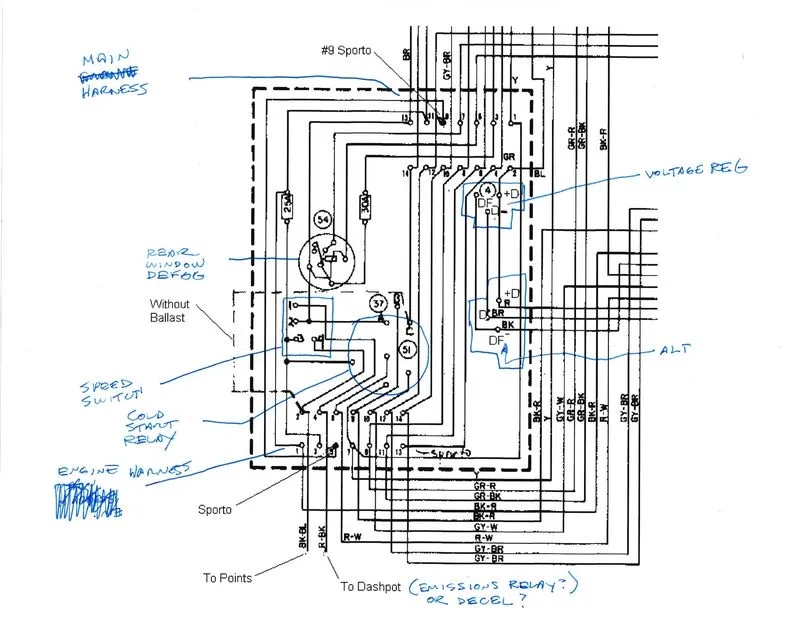 #9 Sporto
MAIN
HARNESS
BR
GY-BR
Y
Y
13 11 8 7 6 3 1
GR
GR-R
GR-BK
BK-R
14 12 10 8 6 4 2
BL
VOLTAGE REG
4 +D
DF D-
25A
30A
54
REAR
WINDOW
DEFOG
Without
Ballast
1
2
3 4
37
51
+D
R
D- BR
BK
DF
ALT
SPEED
SWITCH
COLD
START
RELAY
2 4 6 8 10 12 14
BK-R
GY-W
GR-R
GR-BK
R-W
GY-BR
GY-BR
ENGINE HARNESS
1 3 5 7 9 11 13
SPORTO
Sporto
Y
GR-R
GR-BK
BK-R
GY-W
BK-BL
R-BK
R-W
R-W
GY-BR
GY-BR
To Points
To Dashpot (EMISSIONS RELAY?)
OR DECEL?